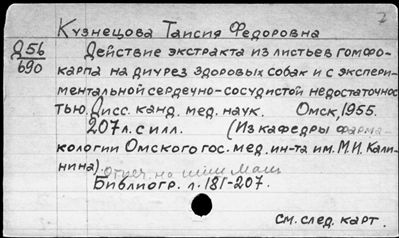 Кузнецова Таисия Федоровна
Д56
690
Действие экстракта из листьев гомфо-
карпа на диурез здоровых собак и с экспери-
ментальной сердечно-сосудистой недостаточнос-
тью. Дисс. канд. мед. наук. Омск, 1955.
207 л. с илл. (Из кафедры фарма-
кологии Омского гос. мед. ин-та им. М.И. Кали-
нина).
Отпеч. на пиш маш
Библиогр. л. 181-207.
см. след. карт.